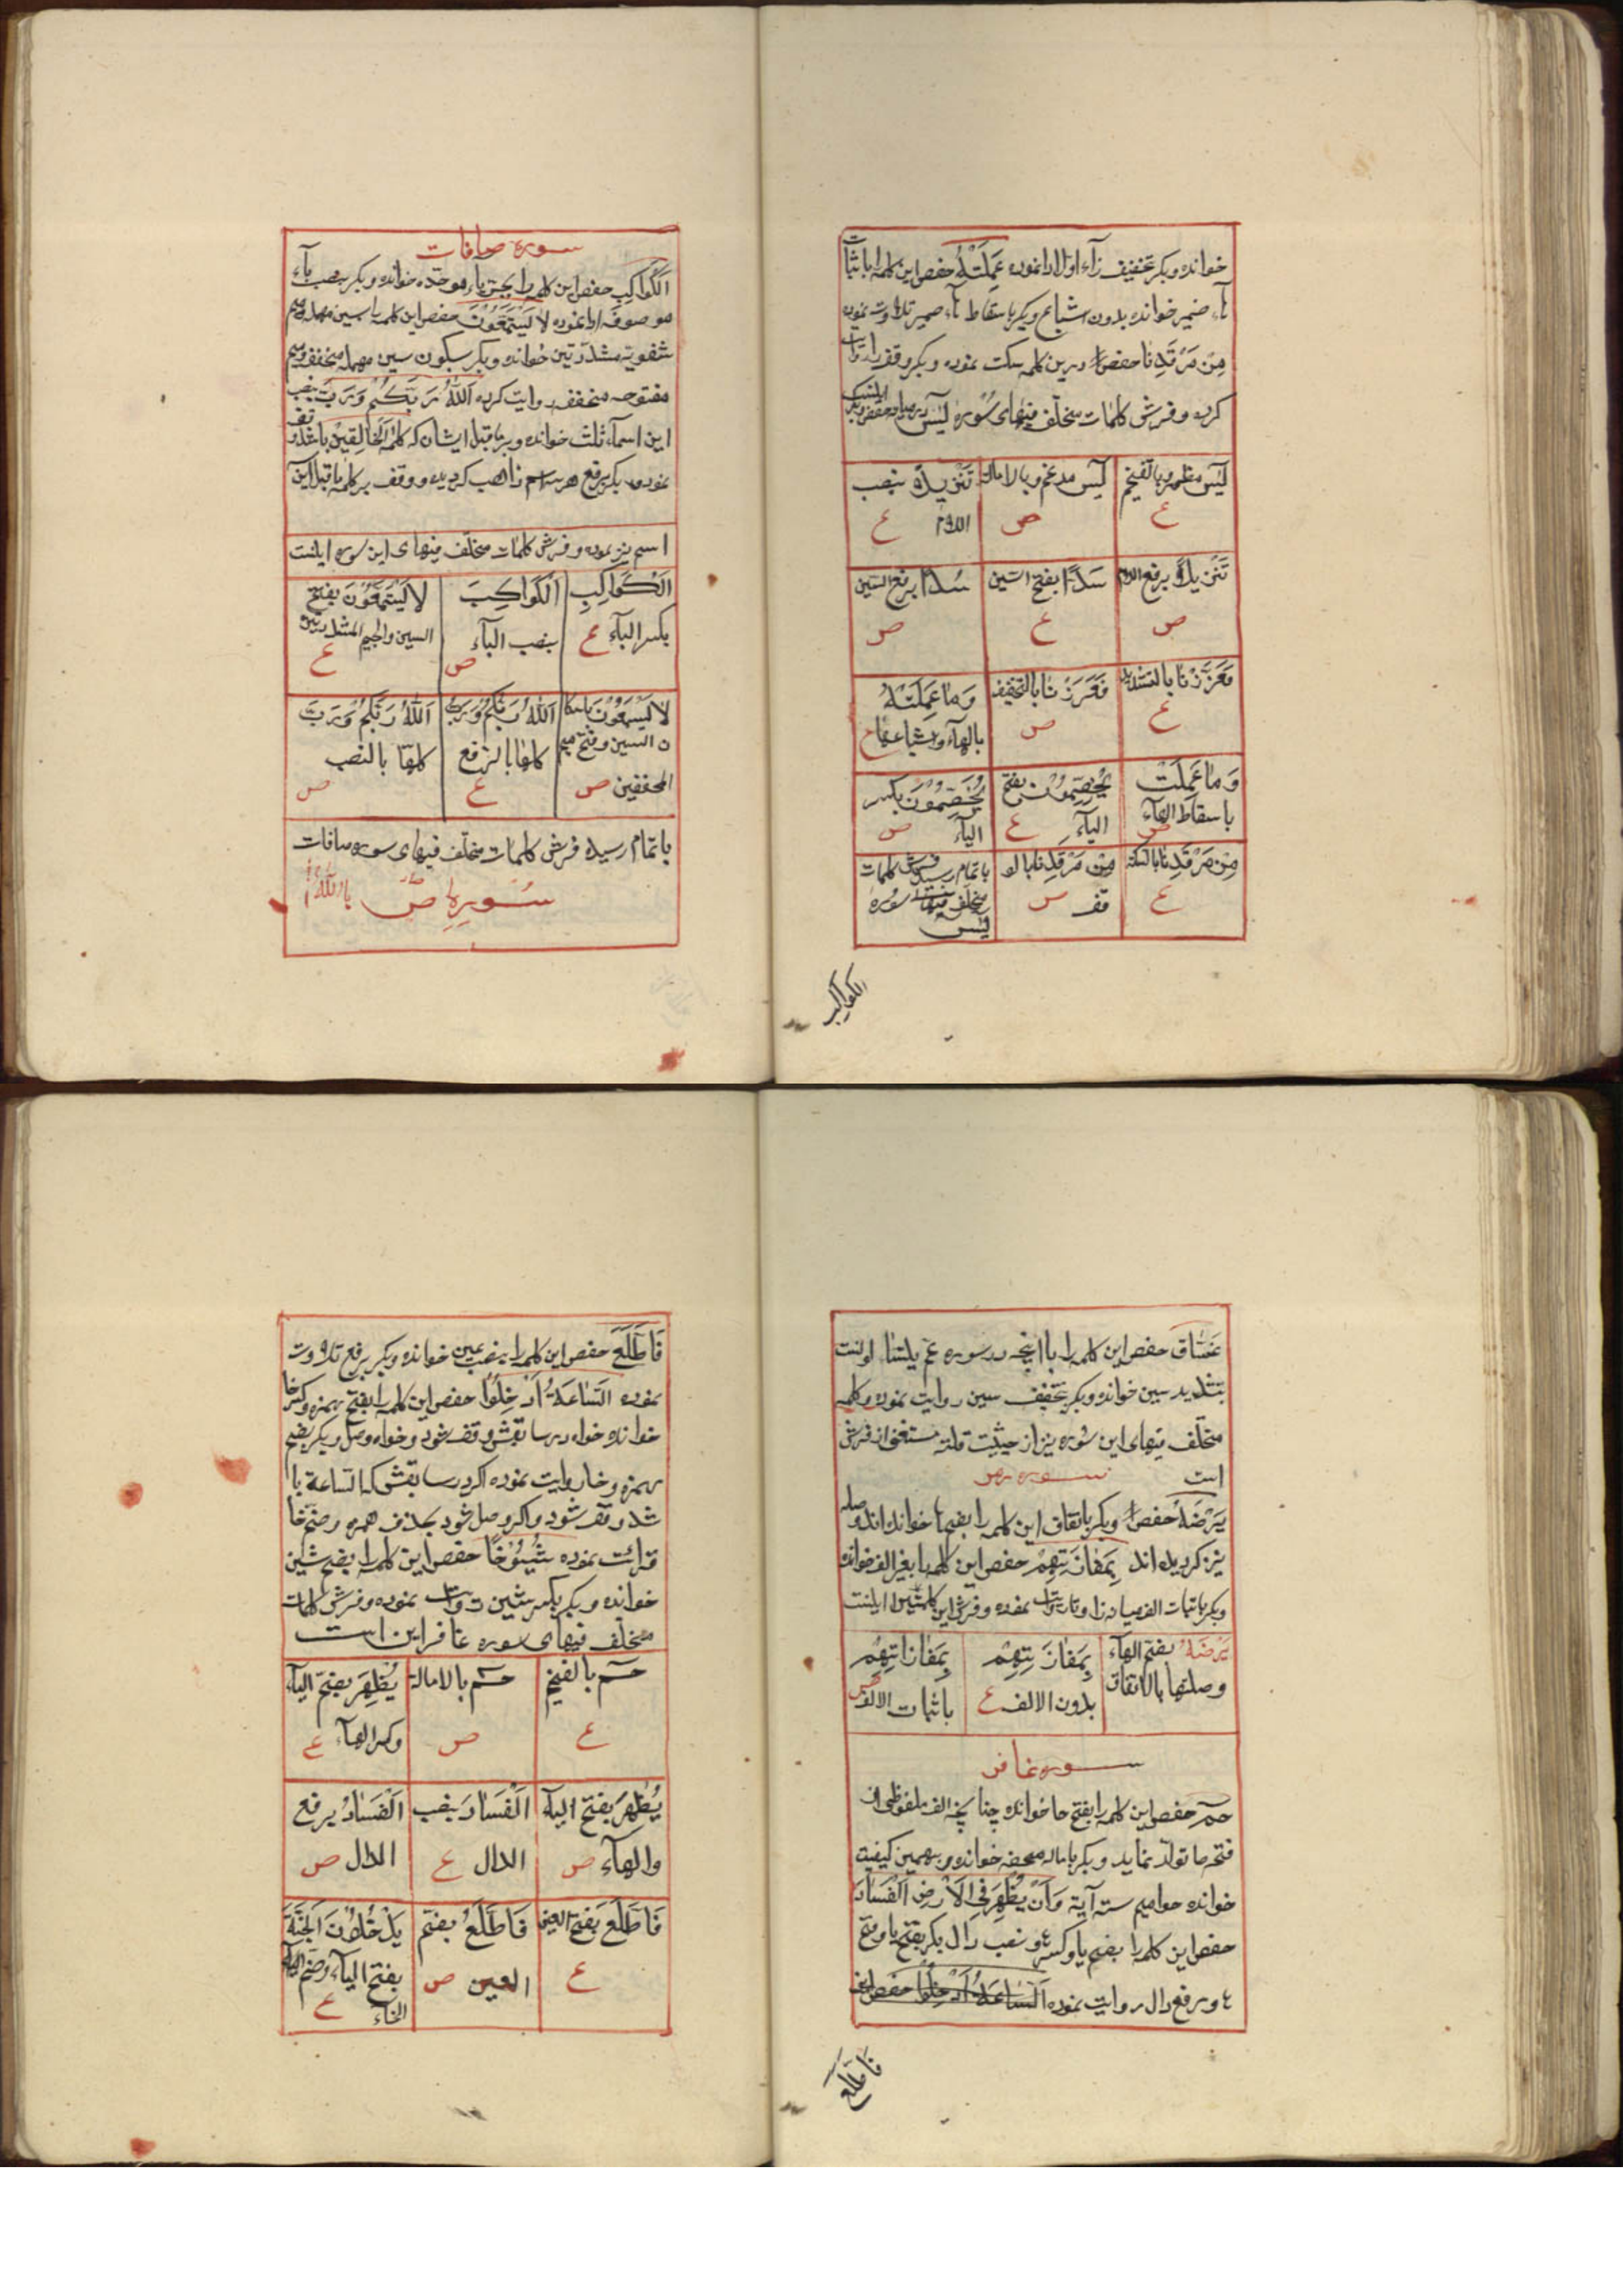 خوانده و بکر بتخفیف زآء اولا ادا نموده عَمِلَتْهُ حفص این کلمه را باثبات
هآء ضمیر خوانده بدون اشباع و بکر باسقاط هآء ضمیر تلاوت نموده
مِن مَرْقَدِنا حفص درین کلمه سکت نموده و بکر وقف روایت
کرده و فرش کلمات مختلف فیهای سُوره یٰسٓ
یٰسٓ مظهر و بالتفخیم ع
یٰسٓ مدغم و بالاماله ص
تَنْزِیلَ بنصب اللام ع
تَنْزِیلُ برفع اللام ص
سَدًّا بفتح السّین ع
سُدًّا برفع السّین ص
فَعَزَّزْنا بالتشدید ع
فَعَزَزْنا بالتخفیف ص
وَمٰا عَمِلَتْهُ بالهآء و اشباعها ع
وَمٰا عَمِلَتْ باسقاط الهآء ص
یَخِصِّمُونَ بفتح الیآء ع
یِخِصِّمُونَ بکسر الیآء ص
مِن مَرْقَدِنا بالسکته ع
مِن مَرْقَدِنا بالوقف ص
باتمام رسید فرش کلمات مختلف فیهای سُوره یٰسٓ
الکواکب
سوره صافات
الکَواکِبِ حفص این کلمه را بجرّ باء موحّده خوانده و بکر بنصب بآء
موصوفه ادا نموده لا یَسَّمَّعُونَ حفص این کلمه را بسین مهمله و میم
شفویه مشدّدتین خوانده و بکر بسکون سین مهمله مخفف و میم
مفتوحه مخففه روایت کرده اَللّٰهُ رَبَّکُمْ وَرَبَّ بنصب
این اسمآء ثلث خوانده و بر ماقبل ایشان که کلمه اَلْخالِقینَ باشد وقف
نموده و بکر برفع هر سه اسم ذاهب کردیده و وقف بر کلمه ماقبل این
اسم نیز نموده و فرش کلمات مختلف فیهای این سوره اینست
الْکَواکِبِ بکسر البآء ع
الْکَواکِبَ بنصب البآء ص
لا یَسَّمَّعُونَ بفتح السین والمیم المشدّدتین ع
لا یَسْمَعُونَ باسکان السین و فتح میم المخففین ص
اَللّٰهُ رَبُّکُمْ وَرَبُّ کلها بالرّفع ع
اَللّٰهَ رَبَّکُمْ وَرَبَّ کلها بالنصب ص
باتمام رسید فرش کلمات مختلف فیهای سوره صافات
سُوره ص
غَسّاق حفص این کلمه را با آنچه در سوره عمّ یتسائلونست
بتشدید سین خوانده و بکر بتخفیف سین روایت نموده و کلمه
مختلف فیهای این سُوره نیز از حیثیت قلّته مستغنی از فرش
است سوره زمر
یَرْضَهُ حفص و بکر باتفاق این کلمه را بضم ها خوانده اند و صله
نیز کردیده اند بِمَفازَتِهِمْ حفص این کلمه را بغیر الف خوانده
و بکر باثبات الف میانه زا و تا روایت نموده و فرش این کلمتین اینست
یَرْضَهُ بفتح الهآء وصلتها بالاتفاق
بِمَفازَتِهِمْ بدون الالف ع
بِمَفازاتِهِمْ باثبات الالف ص
سوره غافر
حمٓ حفص این کلمه را بفتح حا خوانده چنانچه الف ملفوظی از
فتحه حا تولّد نماید و بکر باماله محضه خوانده و بهمین کیفیت
خوانده حوامیم ستّه آیة وَاَنْ یُظْهِرَ فِی الْاَرْضِ الْفَسادَ
حفص این کلمه را بضم یا و کسر ه و نصب دال بکر بفتح یا و فتح
ه و برفع دال روایت نموده اَلسّاعَةُ اَدْخِلُوا حفص این
فاطلع
فَاَطَّلِعَ حفص این کلمه را بنصب عین خوانده و بکر برفع تلاوت
نموده السّاعَةُ اَدْخِلُوا حفص این کلمه را بفتح همزه و کسر خا
خوانده خواه در سابقش وقف شود و خواه وصل و بکر بضم
همزه و خا روایت نموده اکر در سابقش که السّاعة با
شد وقف شود و اکر وصل شود بحذف همزه و ضمّ خا
قرائت نموده شُیُوخًا حفص این کلمه را بضم شین
خوانده و بکر بکسر شین روایت نموده و فرش کلمات
مختلف فیهای سوره غافر این است
حٓمٓ بالتفخیم ع
حٓمٓ بالاماله ص
یُظْهِرَ بفتح الیآء وکسر الهآء ع
یُظْهَرَ بفتح الیآء والهآء ص
اَلْفَسادَ بنصب الدال ع
اَلْفَسادُ برفع الدال ص
فَاَطَّلِعَ بفتح العین ع
فَاَطَّلِعُ بضم العین ص
یَدْخُلُونَ الْجَنَّةَ بفتح الیآء وضمّ الخاء ع